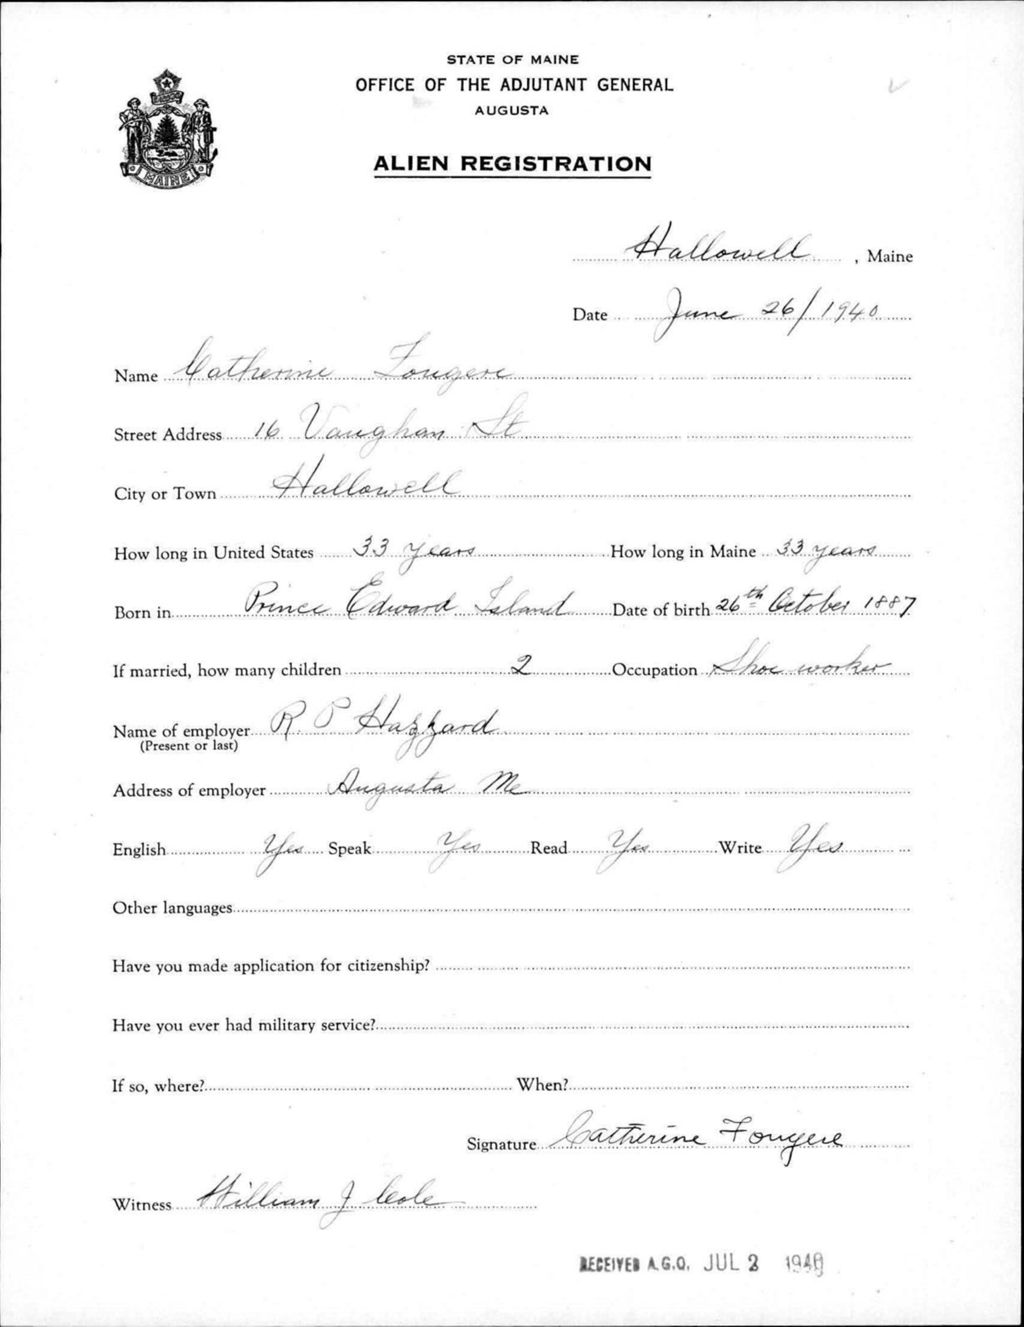 STATE OF MAINE
OFFICE OF THE ADJUTANT GENERAL
AUGUSTA
ALIEN REGISTRATION
MAINE
Hallowell, Maine
Date June 26/1940
Name Catherine Fougere
Street Address 16 Vaughan St
City or Town Hallowell
How long in United States 33 years How long in Maine 33 years
Born in Prince Edward Island Date of birth 26th October 1887
If married, how many children 2 Occupation Shoe worker
Name of employer R. P Hazzard
(Present or last)
Address of employer Augusta Me
English Yes Speak Yes Read Yes Write Yes
Other languages
Have you made application for citizenship?
Have you ever had military service?
If so, where? When?
Signature Catherine Fougere
Witness William J Cole
RECEIVED A.G.O. JUL 2 1940